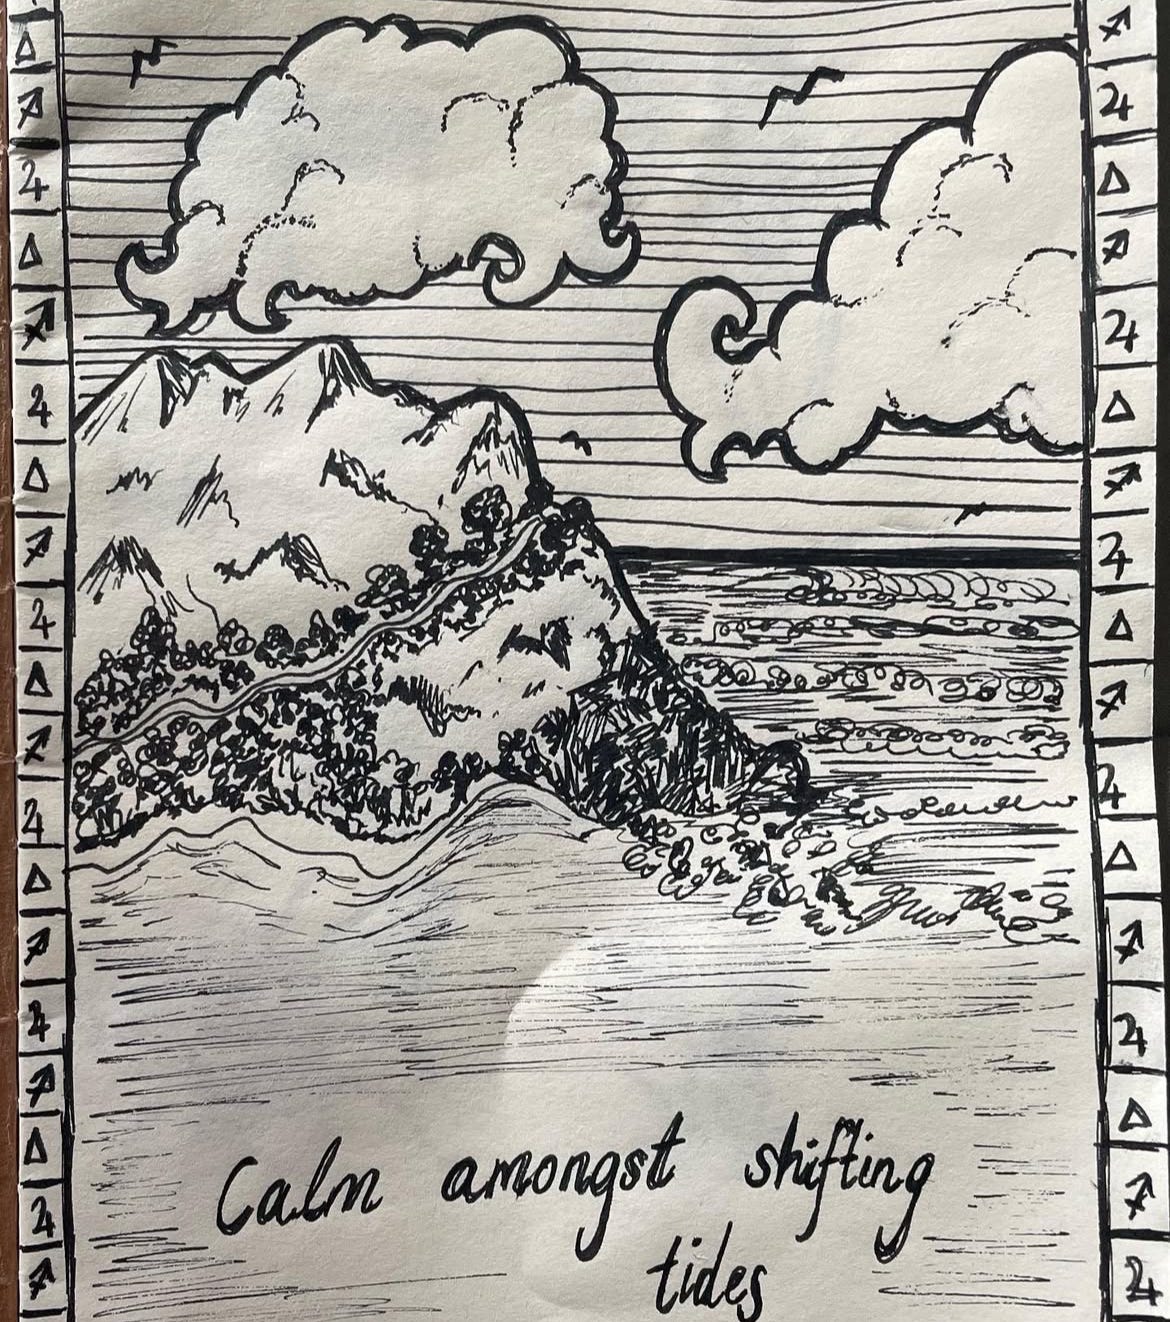 Calm amongst shifting
tides